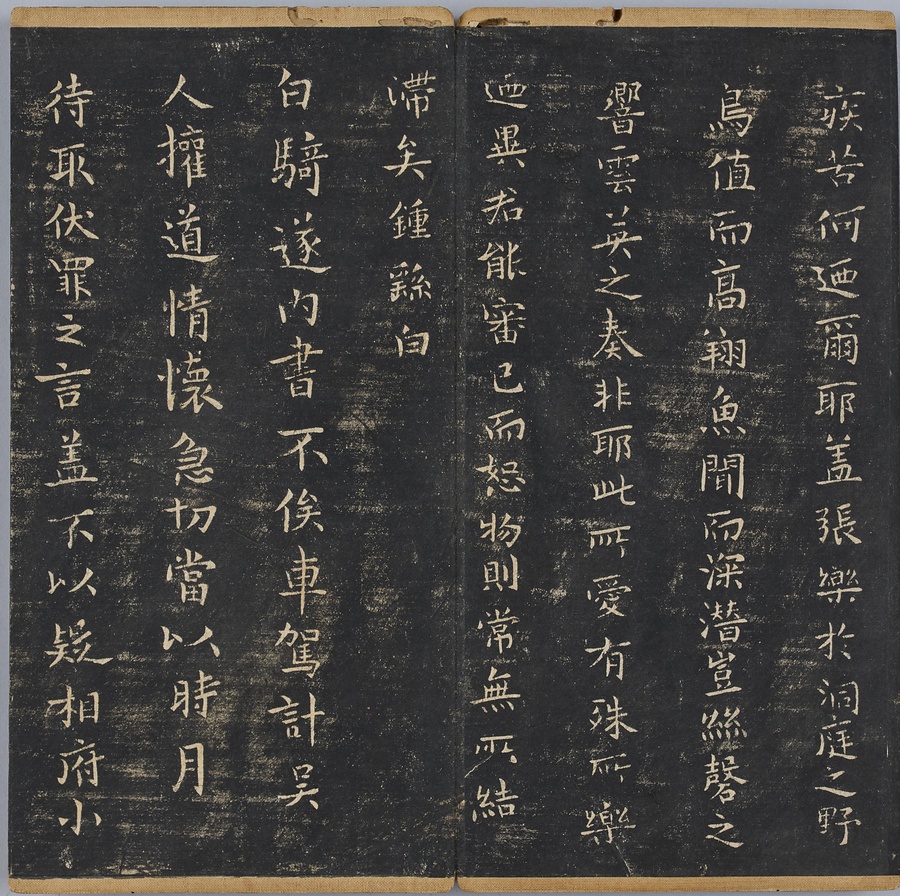 疾苦何迺爾耶蓋張樂於洞庭之野
鳥值而高翔魚聞而深潛豈絲磬之
響雲英之奏非耶此所愛有殊所樂
迺異君能審己而恕物則常無所結
滯矣鍾繇白
白騎遂內書不俟車駕計吳
人權道情懷急切當以時月
待取伏罪之言蓋不以疑相府小